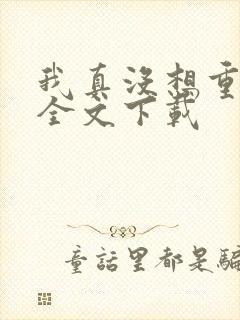 我真没想重
全文下载
童話里都是騙